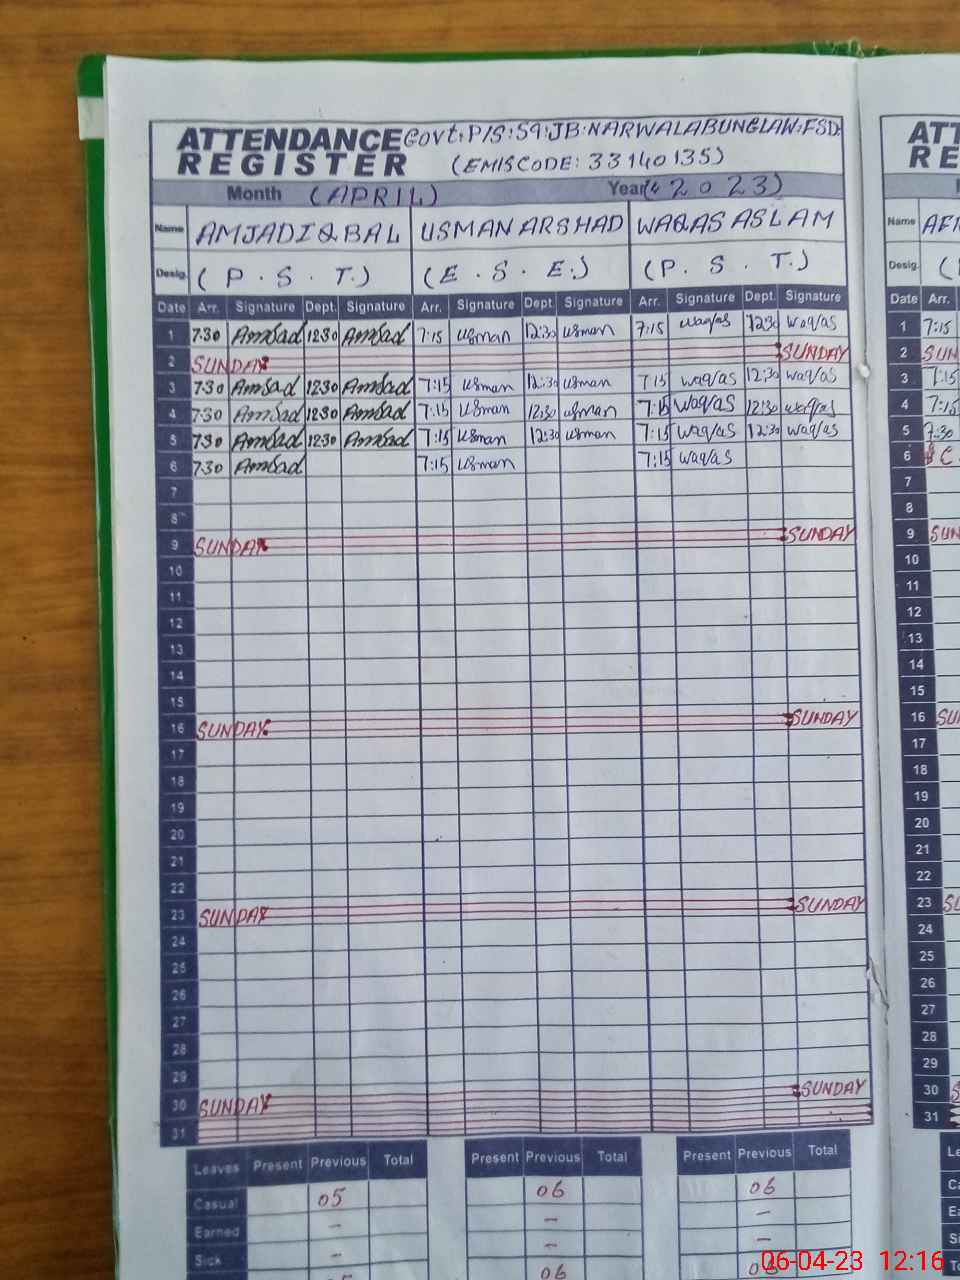 ATTENDANCE Govt:P/S:59:JB:NARWALABUNGLAW:FSD:
REGISTER (EMISCODE: 33140135)
Month (APRIL) Year (2023)
Name AMJAD IQBAL USMAN ARSHAD WAQAS ASLAM
Desig. (P.S.T.) (E.S.E.) (P.S.T.)
Date Arr. Signature Dept. Signature Arr. Signature Dept. Signature Arr. Signature Dept. Signature Date Arr.
1 7:30 Amjad 12:30 Amjad 7:15 usman 12:30 usman 7:15 waqas 12:30 waqas 1 7:15
2 SUNDAY SUNDAY 2 SUN
3 7:30 Amjad 12:30 Amjad 7:15 usman 12:30 usman 7:15 waqas 12:30 waqas 3 7:15
4 7:30 Amjad 12:30 Amjad 7:15 usman 12:30 usman 7:15 waqas 12:30 waqas 4 7:15
5 7:30 Amjad 12:30 Amjad 7:15 usman 12:30 usman 7:15 waqas 12:30 waqas 5 7:30
6 7:30 Amjad 7:15 usman 7:15 waqas 6
7 7
8 8
9 SUNDAY SUNDAY 9 SUN
10 10
11 11
12 12
13 13
14 14
15 15
16 SUNDAY SUNDAY 16 SU
17 17
18 18
19 19
20 20
21 21
22 22
23 SUNDAY SUNDAY 23 SU
24 24
25 25
26 26
27 27
28 28
29 29
30 SUNDAY SUNDAY 30 S
31 31
Leaves Present Previous Total Present Previous Total Present Previous Total
Casual 05 06 06
Earned - - -
Sick - - -
06
06-04-23 12:16